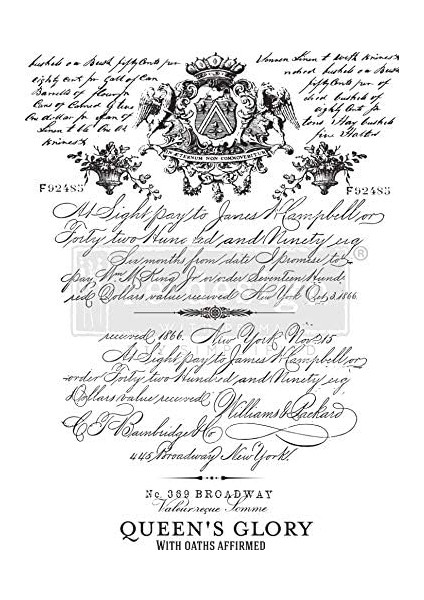 bushels on Bush fifty Cents pur
eighty Cent for Gall of Can
Barrells of flour for
Cons of Colored G
On dollar for of
Linen t be On Ct
Linen t with
bushels on Bush
fifty Cents pur of
bushels of
eighty Cent for
tons Hay bushels
five Halters
ÆTERNUM NON COMMOVEBITUR
F92485
F92485
At Sight pay to James W Campbell, or
Forty two Hundred and Ninety eig
Six months from date I promise to
pay Wm M King Jr or order Seventeen Hund
red Dollars value received New York Oct 3, 1866.
®
received 1866. New York Nov 15
At Sight pay to James W Campbell, or
order Forty two Hundred and Ninety eig
Dollars value received
Williams & Packard
C T Bainbridge & Co
445, Broadway New York.
No. 369 BROADWAY
Valeur reçue Somme
QUEEN'S GLORY
WITH OATHS AFFIRMED